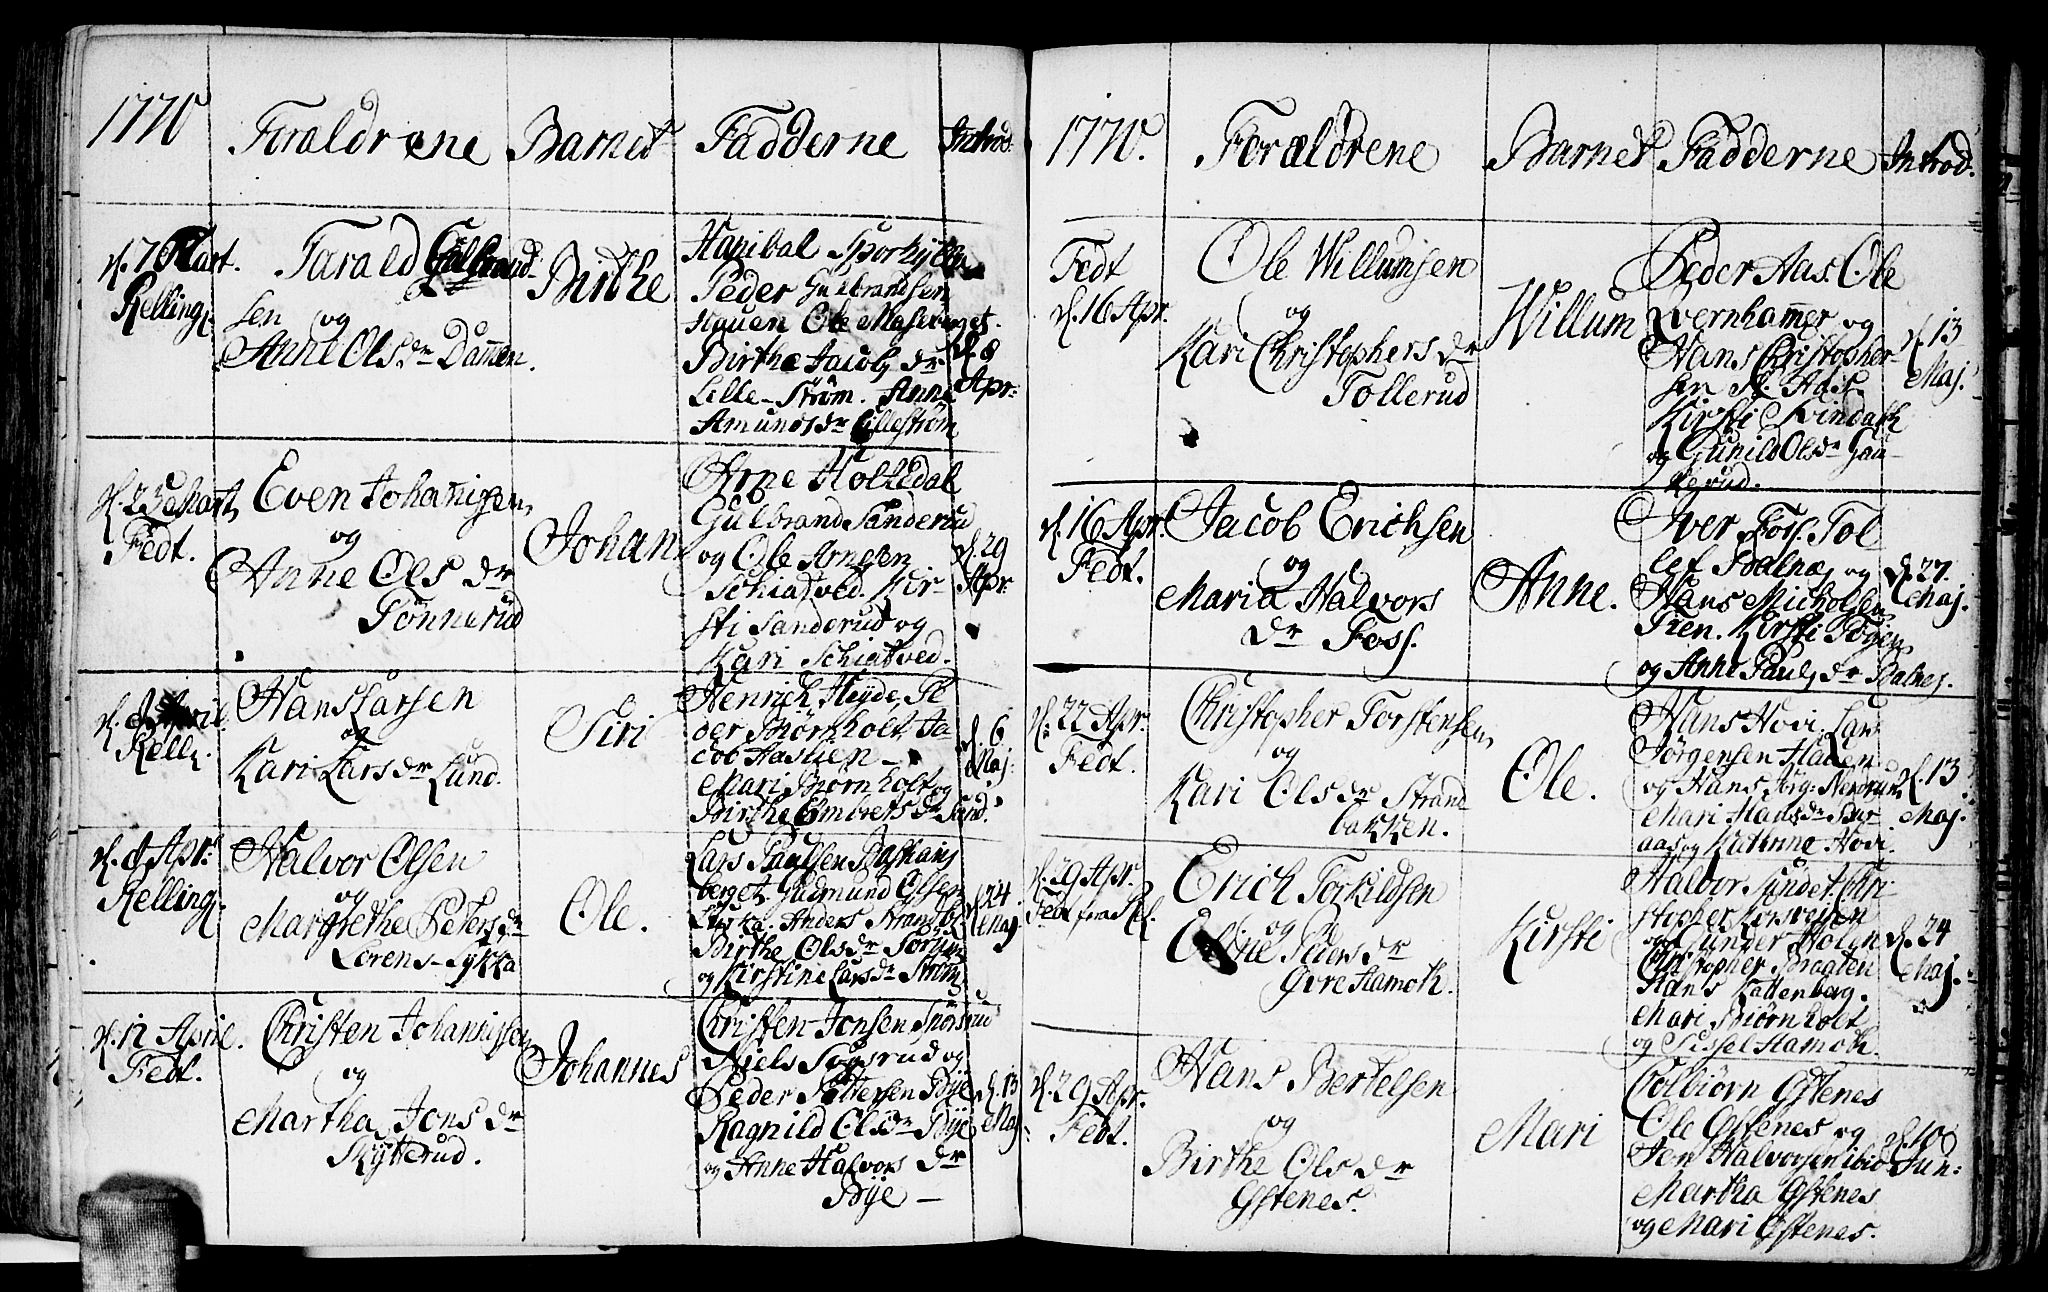 1770
Foraldrene
Barnet
Fadderne
Introd.
d. 7 Mart.
Relling.
Tarald Gulbrand
sen og
Anne Ols dr Dammen.
Birthe
Hanibal
Peder Gulbrandsen
Hauen Ole Maseberget.
Birthe Jacobs dr
Lille-Strøm. Anne
Amunds dr Lillestrøm
d. 8
Apr:
d. 23 Mart.
Fedt.
Even Johannisen
og
Anne Ols dr
Tønnerud
Johan
Arne Holtedal
Gulbrand Sanderud
og Ole Arnesen
Schiatved. Kir-
sti Sanderud og
Kari Schiatved.
d. 29
Apr.
Rell.
Hans Larsen
og
Kari Lars dr Lund.
Siri
Henrich Heyde, Pe
der Biørkholt, Ja
cob Hastien
Mari Biørnholt og
Birthe Embrets dr Lund.
d. 6
Maj.
d. 8 Apr:
Relling.
Halvor Olsen
og
Margrethe Peders dr
Lorens-Lykka
Ole.
Lars Paulsen Bashus
berget. Gudmund Olsen
Lykka. Anders Strandb.
Birthe Ols dr Sørum
og Kirstine Lars dr Strøm
d. 24
Maj
d. 12 April.
Fedt.
Christen Johannissen
og
Martha Jons dr
Skÿtterud.
Johannes
Christen Jonsen Spørsrud
Niels Sogsrud og
Peder Pettersen Bÿe
Ragnild Ols dr Bÿe
og Anne Halvors dr
Bÿe
d. 13
Maj
1770.
Forældrene
Barnet
Fadderne
Introd.
Fedt
d. 16 Apr.
Ole Willumsen
og
Kari Christophers dr
Tollerud
Willum
Peder Aas. Ole
Qvernhammer og
Hans Christopher-
sen
Kirsti Kindath
og Gunild Ols dr Gau-
kerud.
d. 13
Maj.
d. 16 Apr.
Fedt.
Jacob Erichsen
og
Maria Halvors
dr Foss.
Anne.
Iver Foss. Tol
lef Balnæ og
Hans Micholsen
Tien. Kirsti Togen
og Anne Pauls dr Balnes.
d. 27.
Maj.
d. 22 Apr.
Fedt.
Christopher Torstensen
og
Kari Ols dr Strand
bakken.
Ole.
Hans Hovi Lars
Jörgensen Hauen
og Hans Jörg: Nerdrum
Mari Hans dr Bur
aas og Kathrine Hovi.
d. 13
Maj.
d. 29 Apr.
Fedt fra Rel.
Erich Torkildsen
og
Eline Peders dr
Øvre Hamoth.
Kirsti
Halvor Sundet. Chri
stopher Korsveien
og Gunder Holen
Christopher Braaten
Hans Kattenbag.
Mari Biørnholt
og Sissel Hamoth.
d. 24
Maj.
d. 29 Apr.
Fedt.
Hans Bertelsen
og
Birthe Ols dr
Østenes.
Mari
Colbiørn Østenes
Ole Østenes og
Jen Halvorsen ibid
Martha Østenes
og Mari Østenes.
d. 10
Jun: